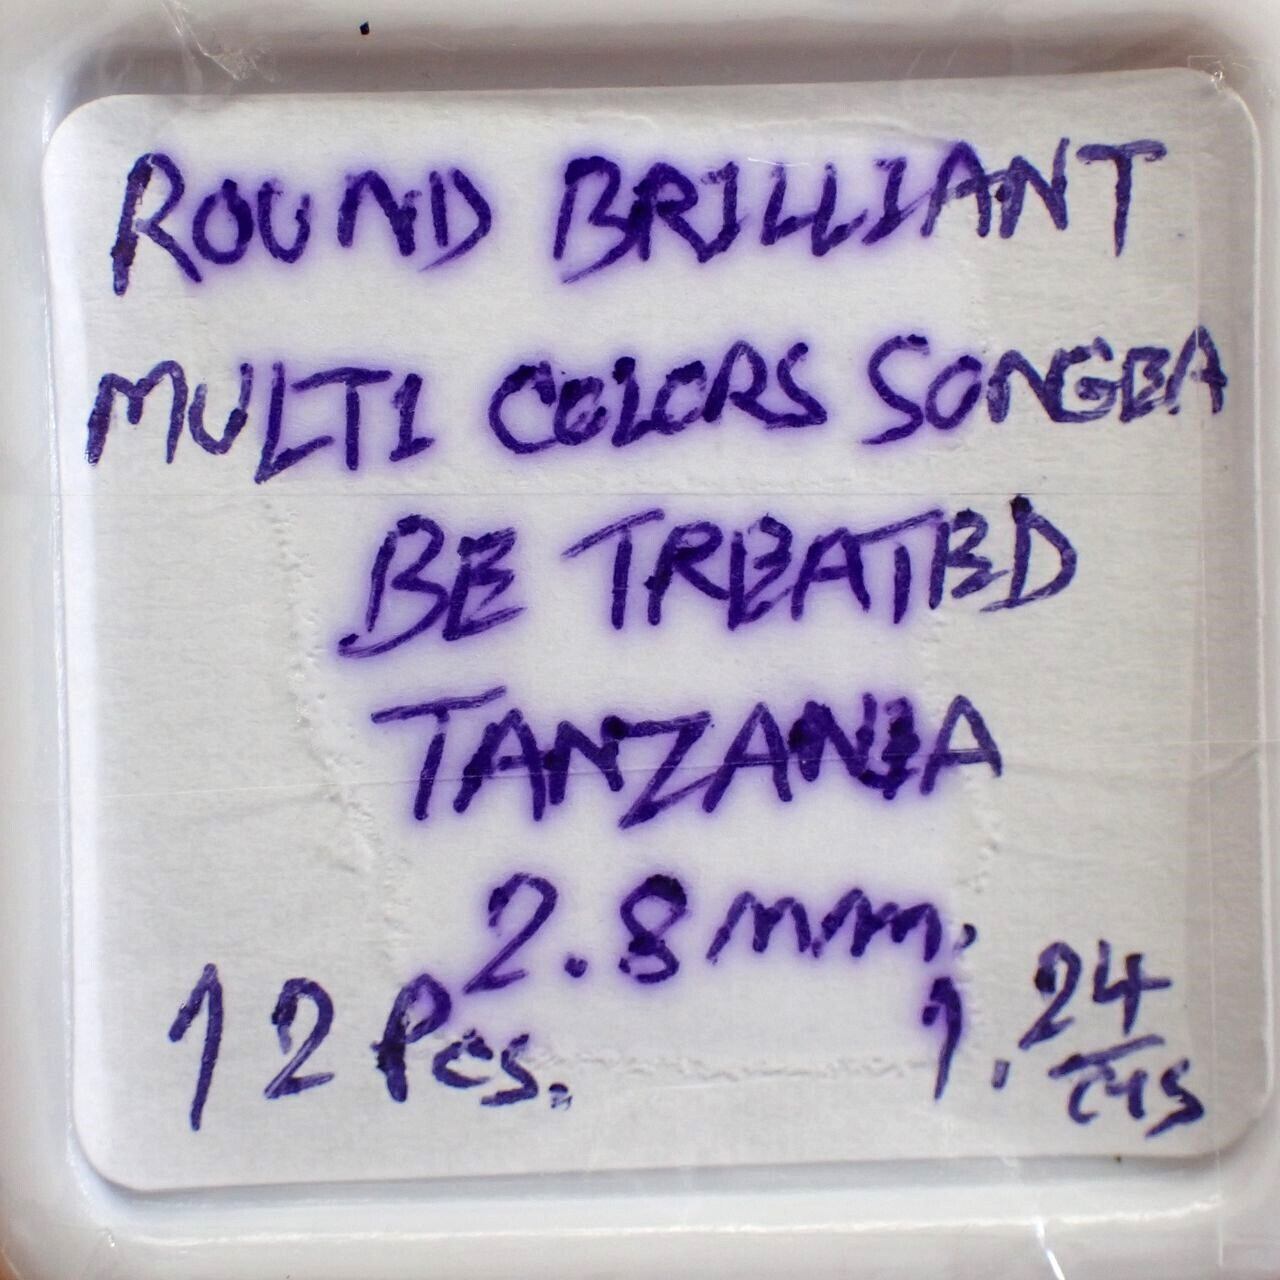 ROUND BRILLIANT
MULTI COLORS SONGEA
BE TREATED
TANZANIA
2.8 mm.
12 Pcs. 1.24 cts